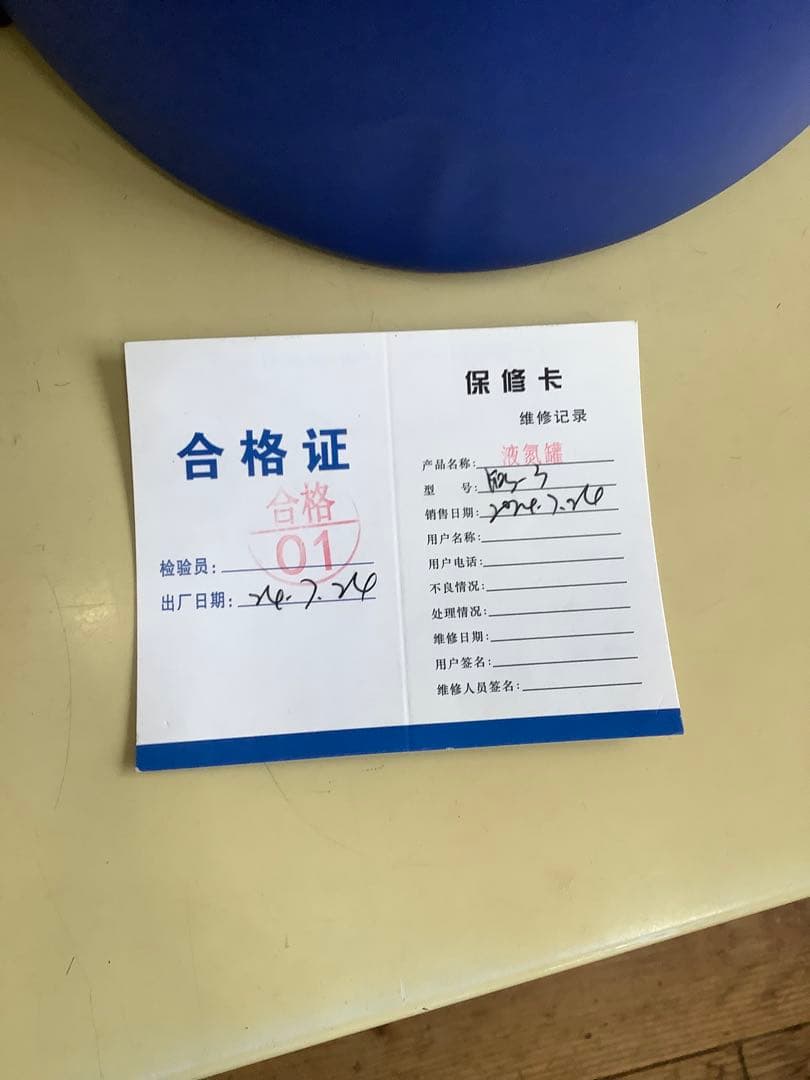 合格证
合格
01
检验员:
出厂日期: 24.7.24
保修卡
维修记录
产品名称: 液氮罐
型 号:
销售日期: 2024.7.24
用户名称:
用户电话:
不良情况:
处理情况:
维修日期:
用户签名:
维修人员签名: